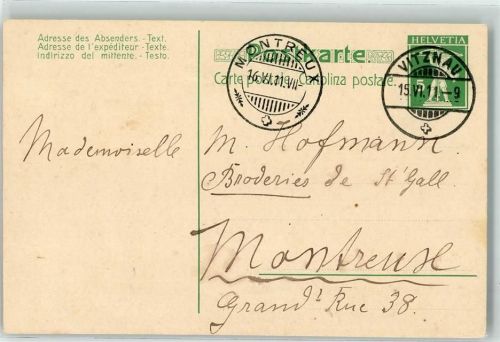 Adresse des Absenders. - Text.
Adresse de l'expéditeur - Texte.
Indirizzo del mittente. - Testo.
Postkarte
Carte postale Cartolina postale
HELVETIA
5
MONTREUX
16.VI.11.VII
VITZNAU
15.VI.11.-9
Mademoiselle
M. Hofmann
Broderies de St Gall
Montreux
Grand' Rue 38.